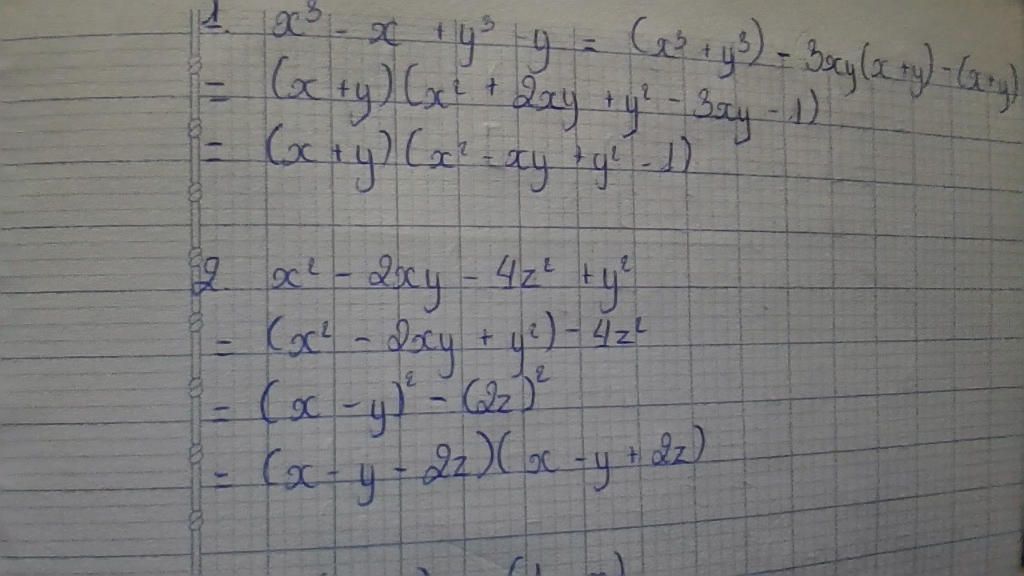 1. x³ - x + y³ - y = (x³ + y³) - 3xy(x+y) - (x+y)
= (x + y)(x² + 2xy + y² - 3xy - 1)
= (x + y)(x² - xy + y² - 1)
2. x² - 2xy - 4z² + y²
= (x² - 2xy + y²) - 4z²
= (x - y)² - (2z)²
= (x - y - 2z)(x - y + 2z)